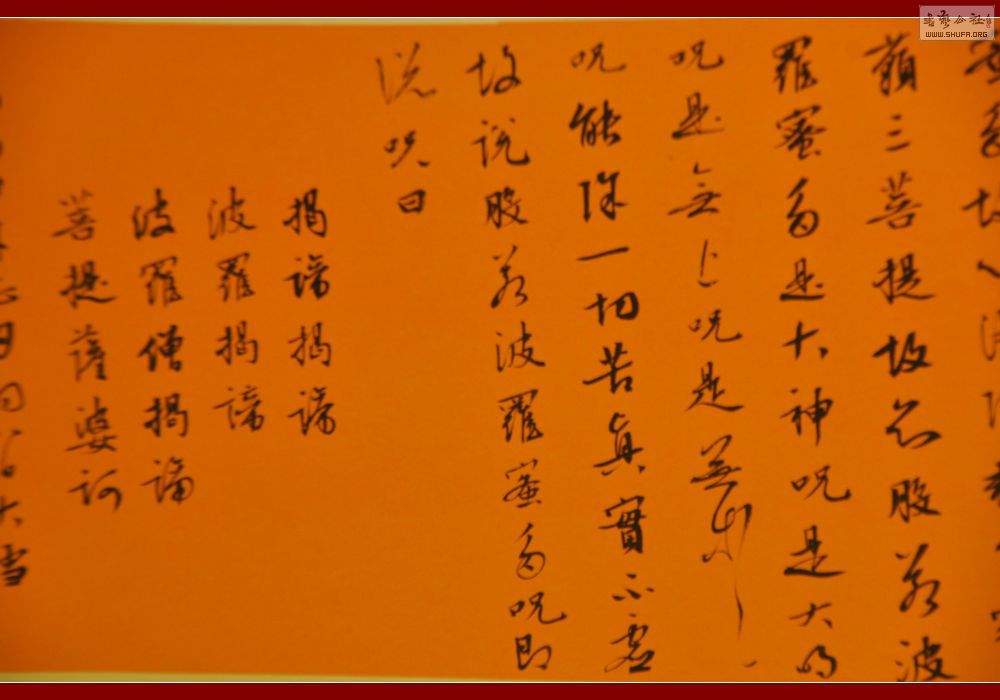 藐三菩提故知般若波
羅蜜多是大神呪是大明
呪是無上呪是無等
呪能除一切苦真實不虛
故說般若波羅蜜多呪即
說呪曰
揭諦揭諦
波羅揭諦
波羅僧揭諦
菩提薩婆訶
大雪
書藝公社
WWW.SHUFA.ORG